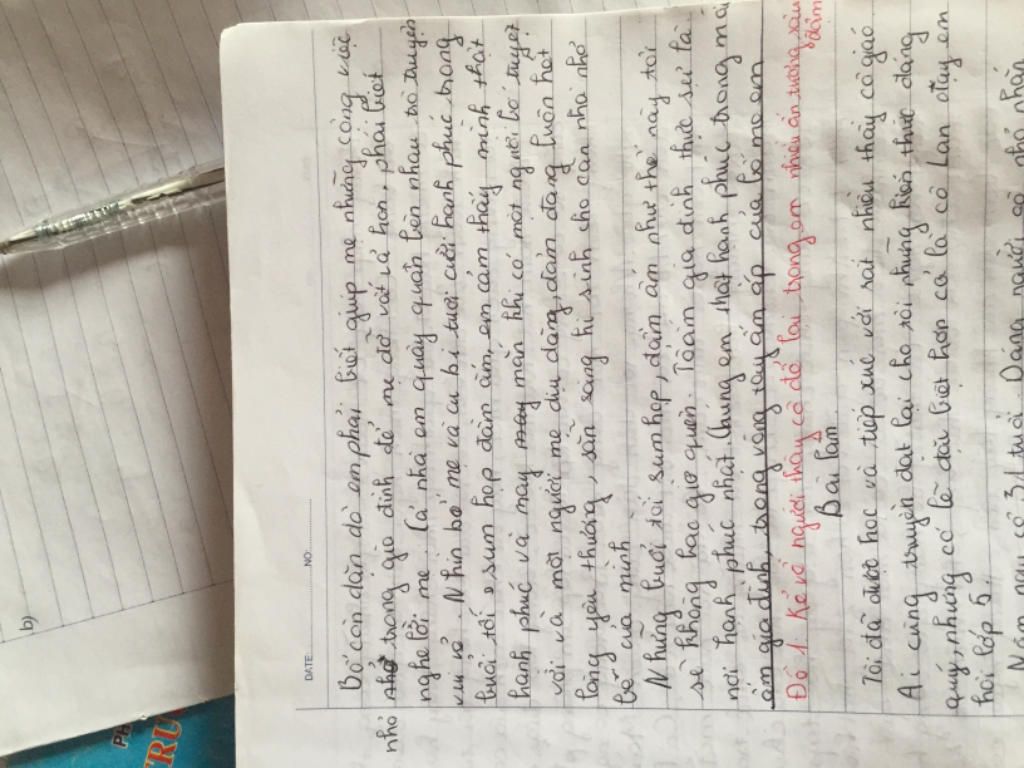 b)
PH
TRU
DATE: NO:
Bố còn dặn dò em phải biết giúp mẹ những công việc
nhỏ trong gia đình để mẹ đỡ vất vả hơn, phải biết
nghe lời mẹ. Cả nhà em quây quần bên nhau trò truyện
vui vẻ. Nhìn bố mẹ và cu bi tươi cười hạnh phúc trong
buổi tối sum họp đầm ấm, em cảm thấy mình thật
hạnh phúc và may mắn khi có một người bố tuyệt
vời và một người mẹ dịu dàng, đảm đang luôn hết
lòng yêu thương, sẵn sàng hi sinh cho con nhỏ nhỏ
bé của mình
Những buổi tối sum họp, đầm ấm như thế này tôi
sẽ không bao giờ quên. Toàm gia đình thực sự là
nơi hạnh phúc nhất. Chúng em thật hạnh phúc trong mái
ấm gia đình, trong vòng tay ấm áp của bố mẹ em
Đề 1 Kể về người thầy cô để lại trong em nhiều ấn tượng sâu
đậm
Bài làm
Tôi đã được học và tiếp xúc với rất nhiều thầy cô giáo
Ai cũng truyền đạt lại cho tôi những kiến thức đáng
quý, nhưng có lẽ đặc biệt hơn cả là cô Lan dạy em
hồi lớp 5.
Năm nay cô 31 tuổi. Dáng người cô nhỏ nhắn